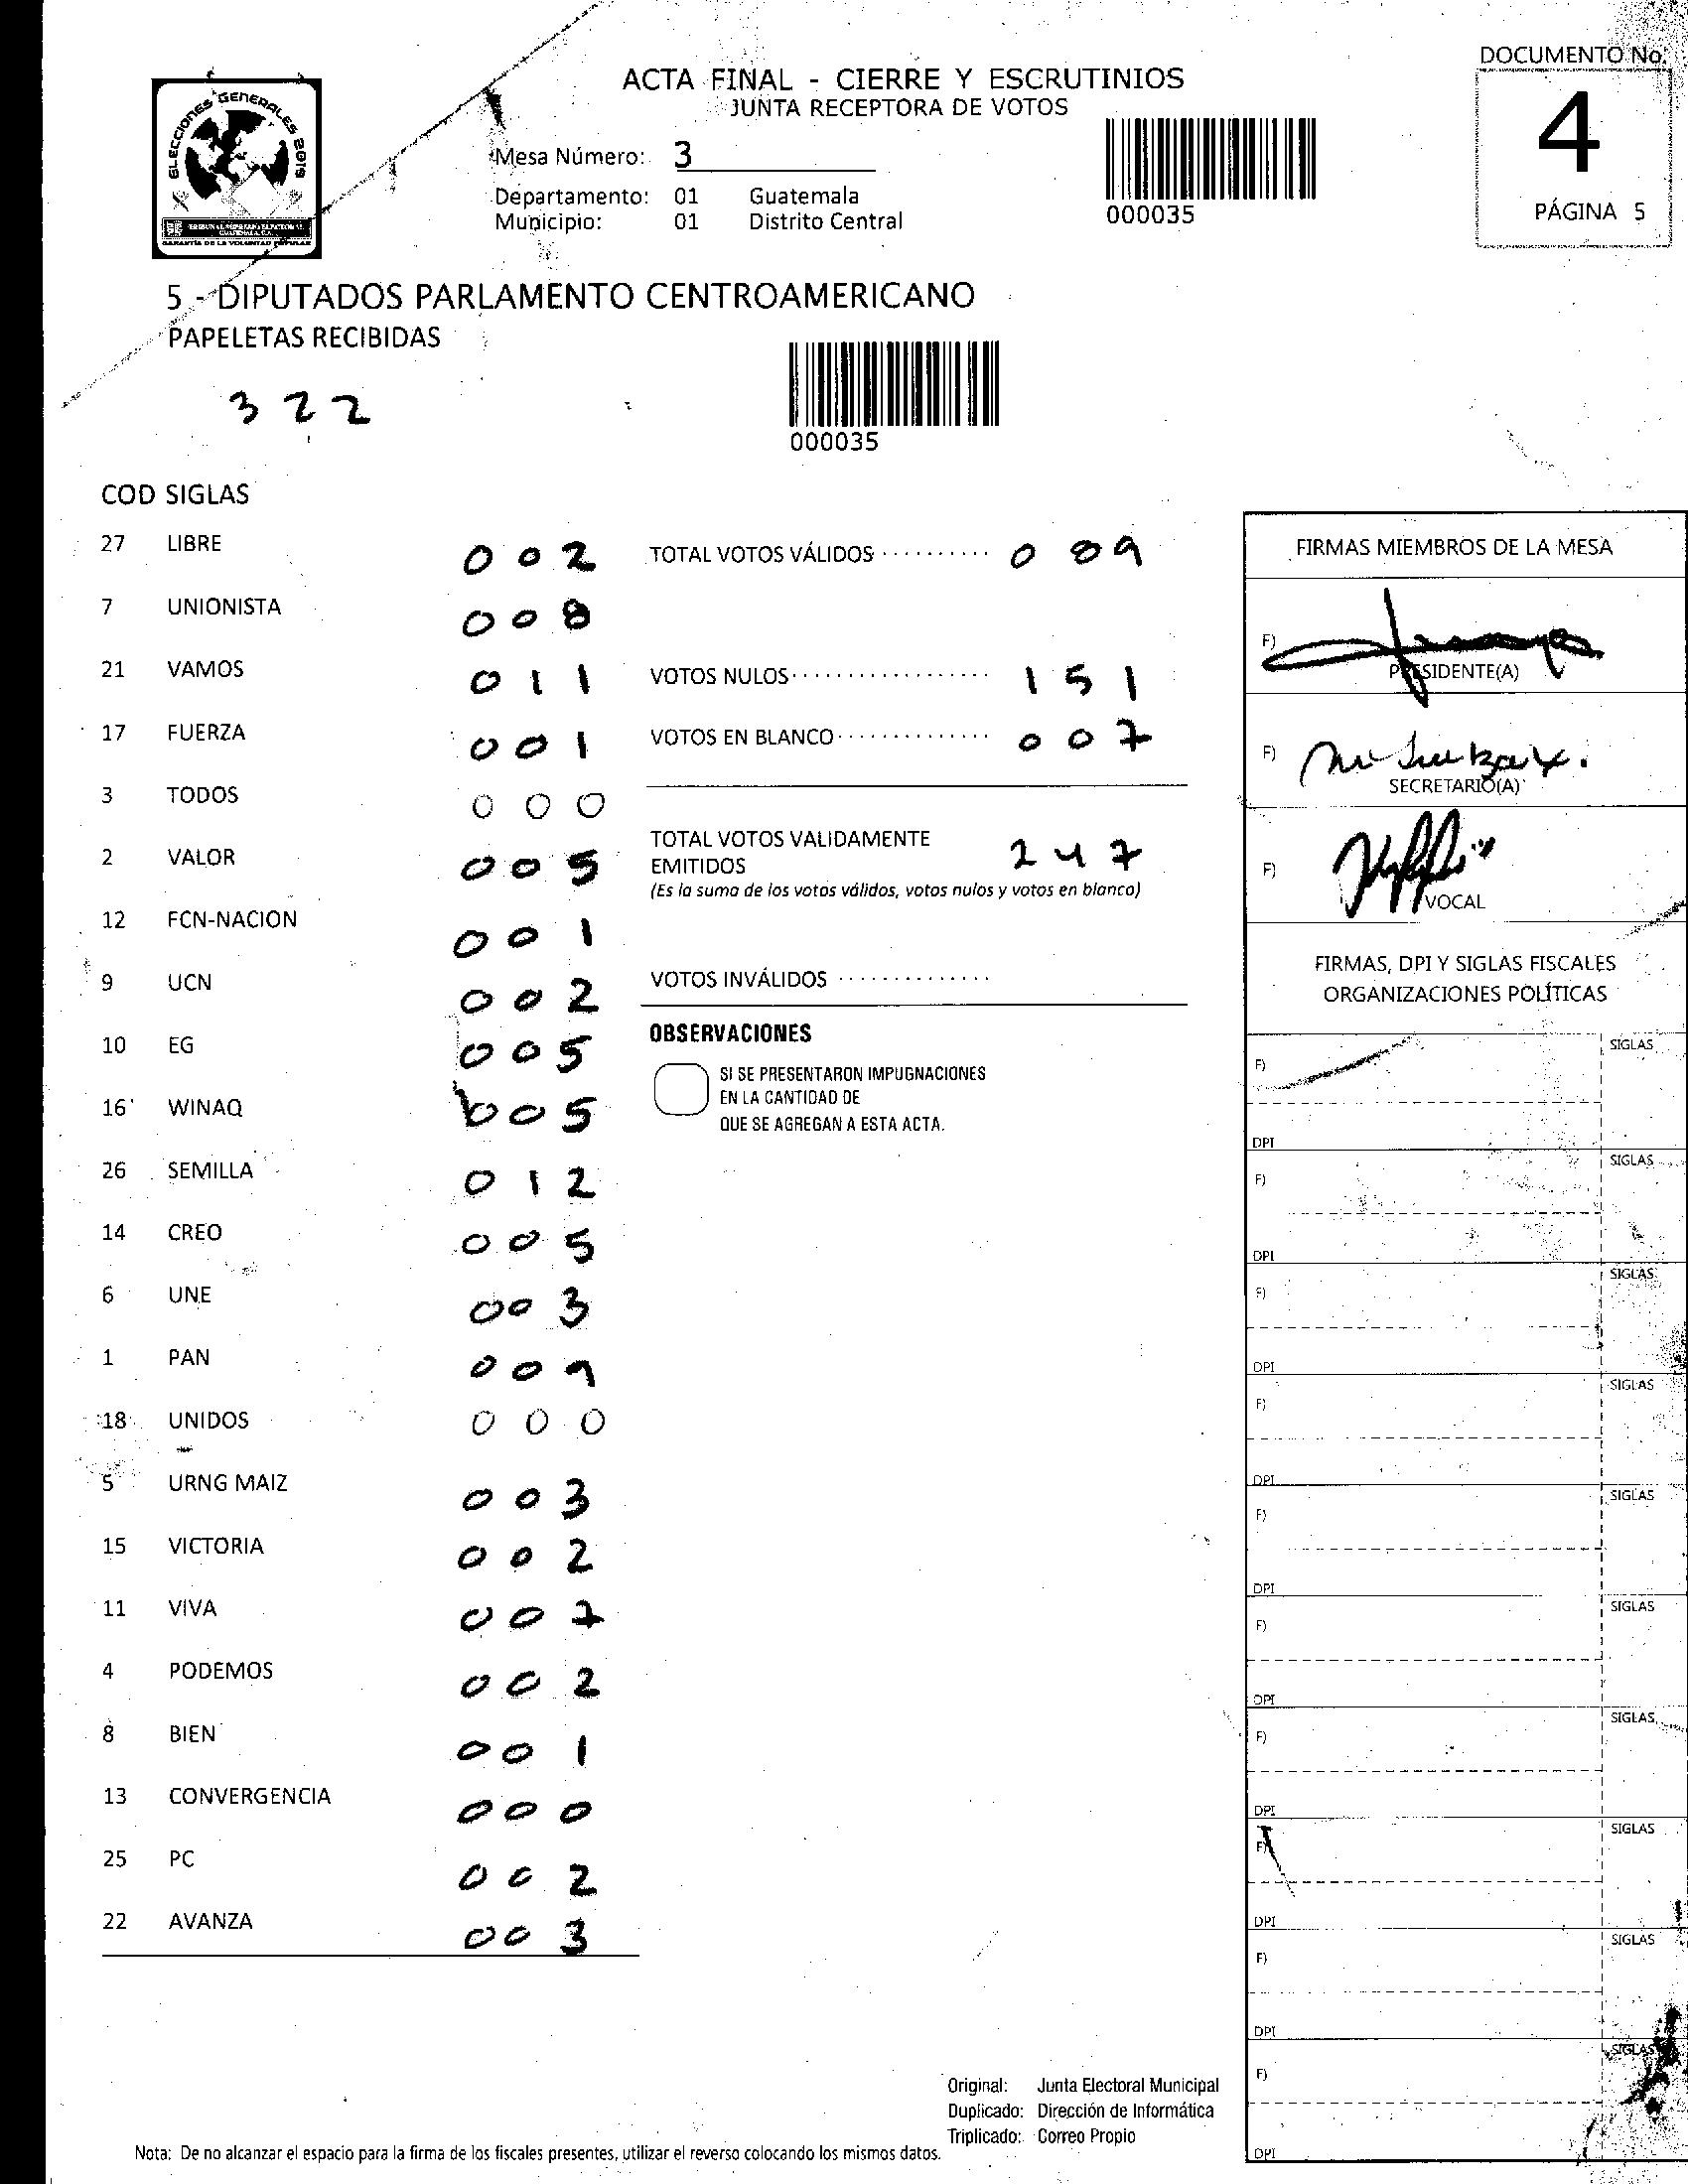 ELECCIONES GENERALES 2019
TRIBUNAL SUPREMO ELECTORAL
GUATEMALA, C.A.
GARANTÍA DE LA VOLUNTAD POPULAR
ACTA FINAL - CIERRE Y ESCRUTINIOS
JUNTA RECEPTORA DE VOTOS
Mesa Número: 3
Departamento: 01 Guatemala
Municipio: 01 Distrito Central
000035
DOCUMENTO No.
4
PÁGINA 5
5 - DIPUTADOS PARLAMENTO CENTROAMERICANO
PAPELETAS RECIBIDAS
322
000035
COD SIGLAS
27 LIBRE 002
7 UNIONISTA 008
21 VAMOS 011
17 FUERZA 001
3 TODOS 000
2 VALOR 005
12 FCN-NACION 001
9 UCN 002
10 EG 005
16 WINAQ 005
26 SEMILLA 012
14 CREO 005
6 UNE 003
1 PAN 009
18 UNIDOS 000
5 URNG MAIZ 003
15 VICTORIA 002
11 VIVA 007
4 PODEMOS 002
8 BIEN 001
13 CONVERGENCIA 000
25 PC 002
22 AVANZA 003
TOTAL VOTOS VÁLIDOS .......... 089
VOTOS NULOS .................. 151
VOTOS EN BLANCO .............. 007
TOTAL VOTOS VALIDAMENTE
EMITIDOS 247
(Es la suma de los votos válidos, votos nulos y votos en blanco)
VOTOS INVÁLIDOS ..............
OBSERVACIONES
SI SE PRESENTARON IMPUGNACIONES
EN LA CANTIDAD DE
QUE SE AGREGAN A ESTA ACTA.
FIRMAS MIEMBROS DE LA MESA
F)
PRESIDENTE(A)
F)
SECRETARIO(A)
F)
VOCAL
FIRMAS, DPI Y SIGLAS FISCALES
ORGANIZACIONES POLÍTICAS
F) SIGLAS
DPI
F) SIGLAS
DPI
F) SIGLAS
DPI
F) SIGLAS
DPI
F) SIGLAS
DPI
F) SIGLAS
DPI
F) SIGLAS
DPI
F) SIGLAS
DPI
F) SIGLAS
DPI
F) SIGLAS
DPI
Original: Junta Electoral Municipal
Duplicado: Dirección de Informática
Triplicado: Correo Propio
Nota: De no alcanzar el espacio para la firma de los fiscales presentes, utilizar el reverso colocando los mismos datos.